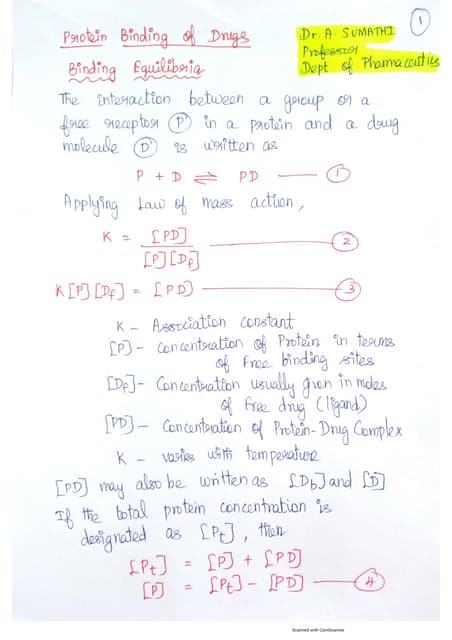 1
Protein Binding of Drugs
Dr. A. SUMATHI
Professor
Dept. of Pharmaceutics
Binding Equilibria
The interaction between a group or a
free receptor (P) in a protein and a drug
molecule (D) is written as
P + D ⇌ PD — 1
Applying Law of mass action,
K = [PD] / [P][Df] — 2
K[P][Df] = [PD] — 3
K – Association constant
[P] – Concentration of Protein in terms
of Free binding sites
[Df] – Concentration usually given in moles
of free drug (ligand)
[PD] – Concentration of Protein-Drug Complex
K – varies with temperature
[PD] may also be written as [Db] and [D]
If the total protein concentration is
designated as [Pt], then
[Pt] = [P] + [PD]
[P] = [Pt] – [PD] — 4
Scanned with CamScanner